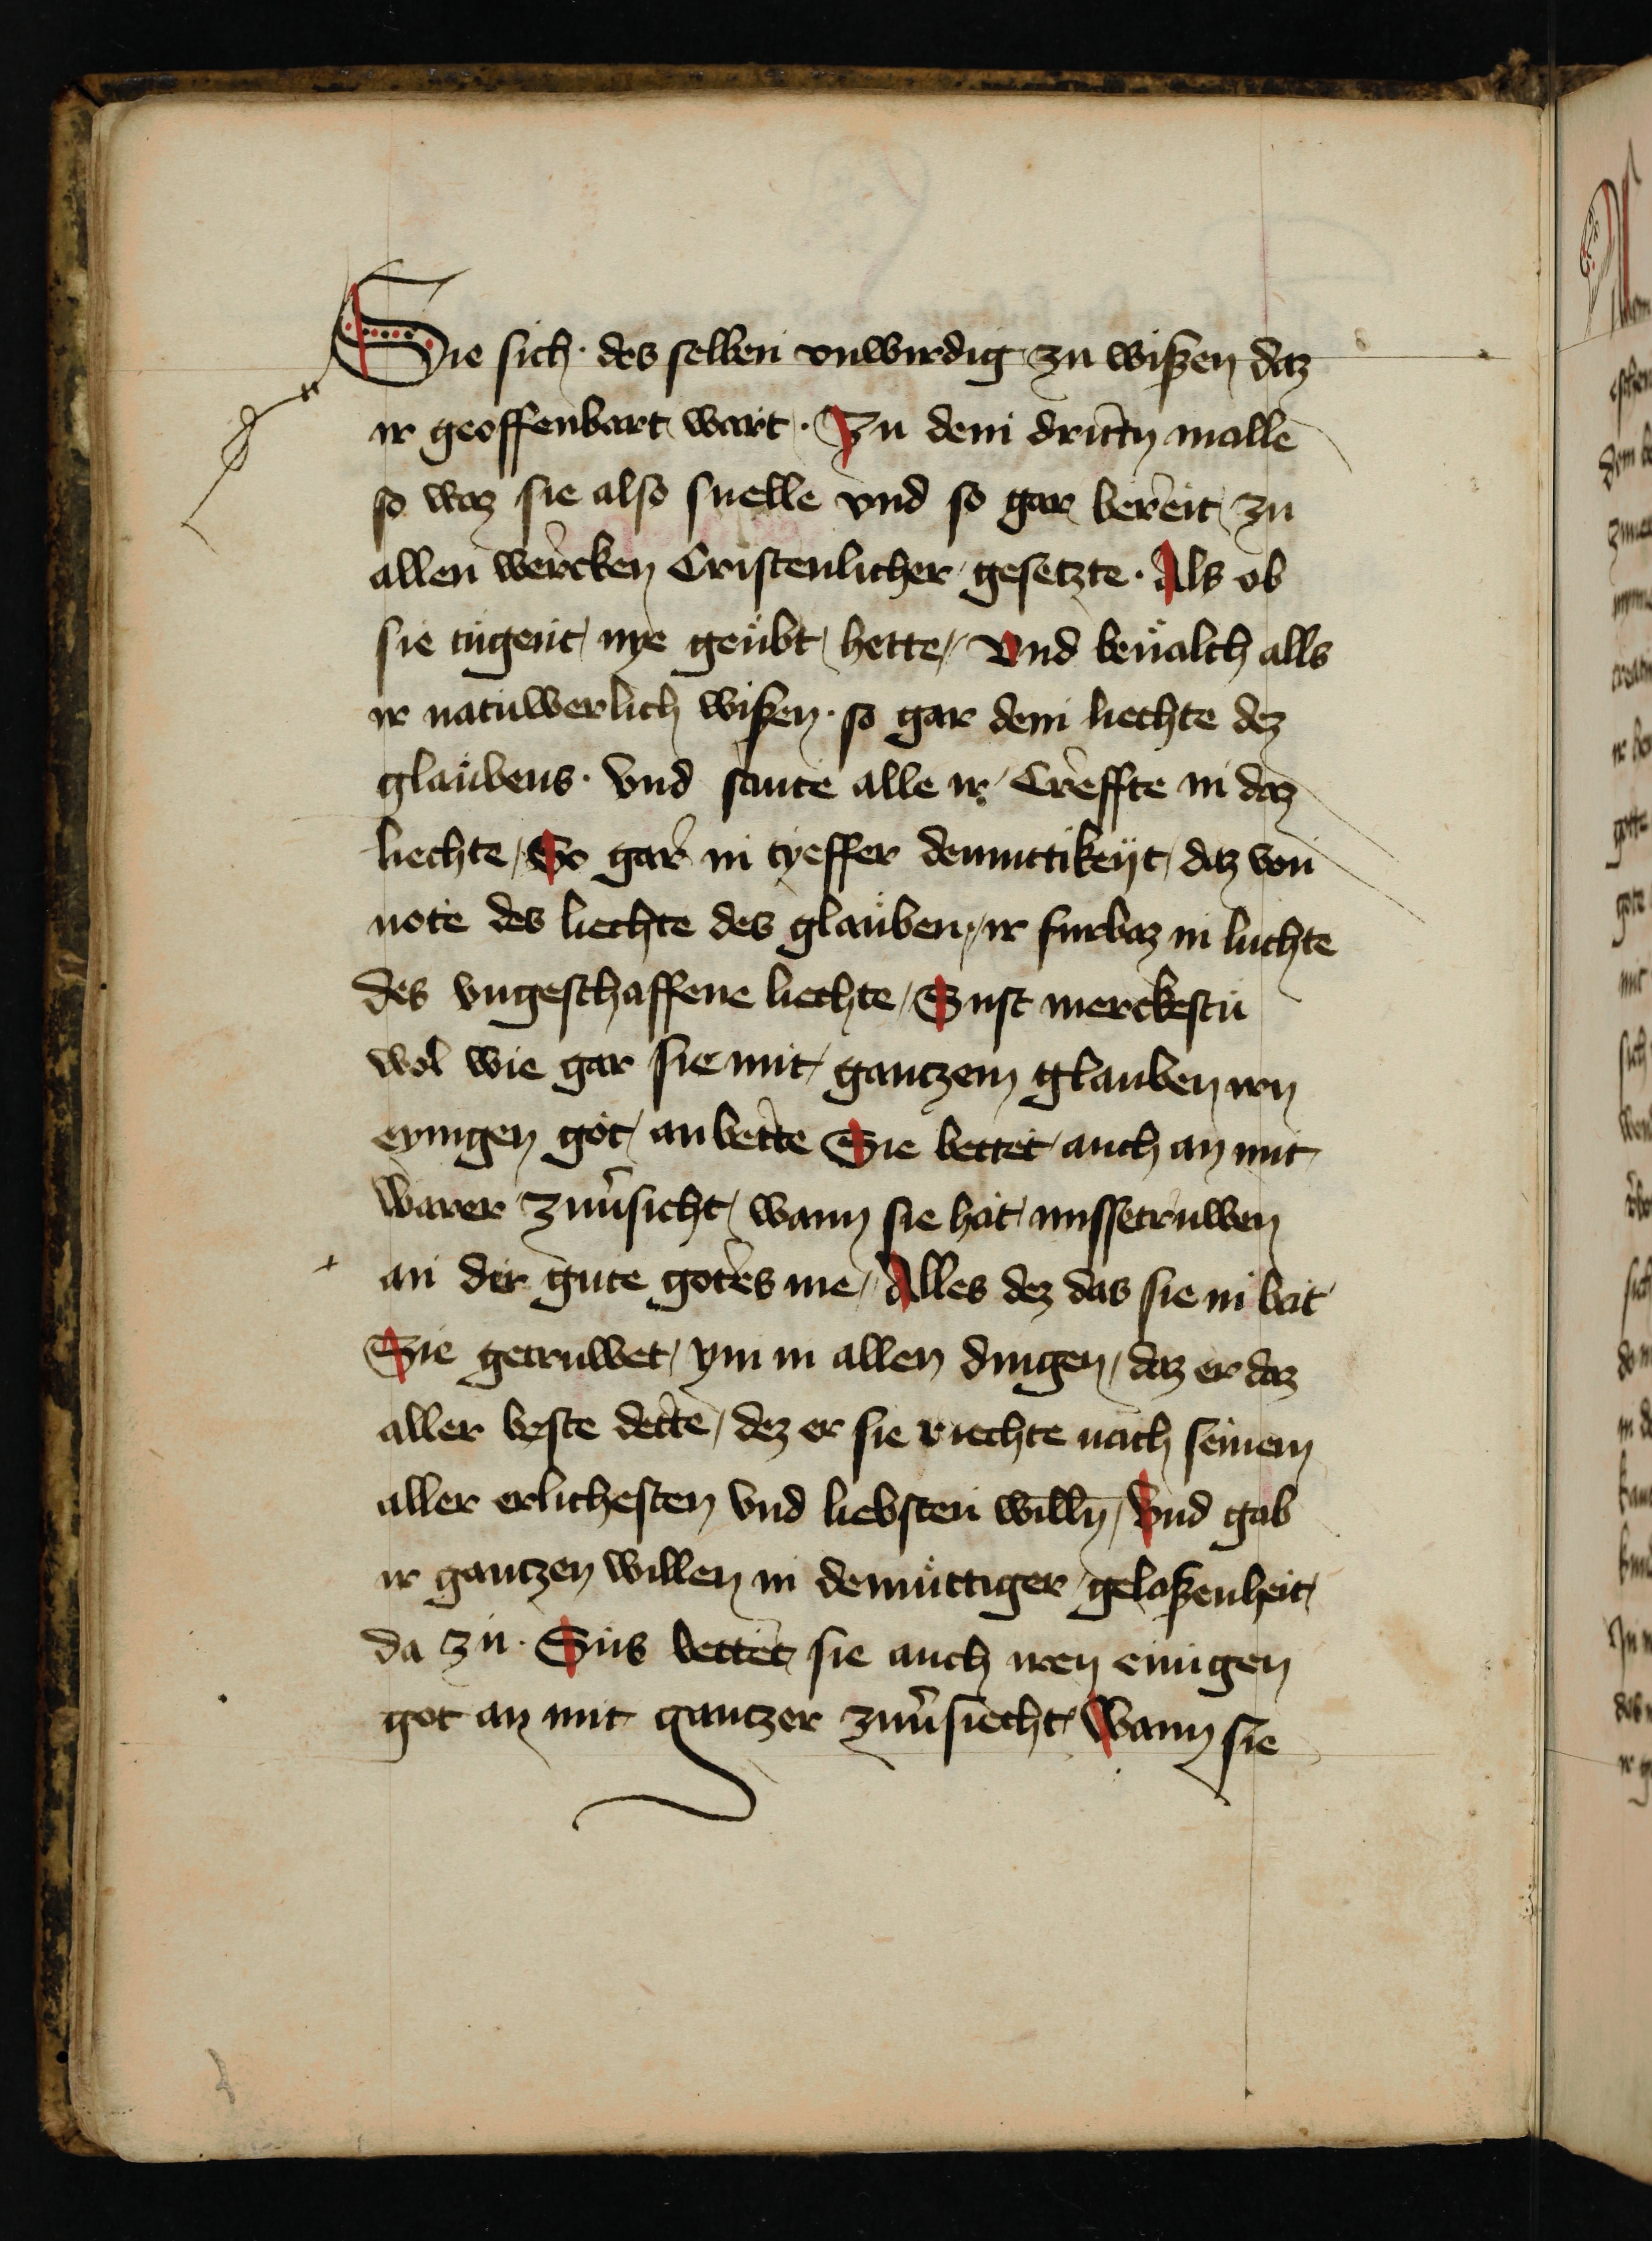 Sie sich · des selben vnwirdig zu wißen daz
ir geoffenbart wart · Zu dem dritten malle
so waz sie also snelle vnd so gar bereit zu
allen wercken Cristenlicher gesetzte · Als ob
sie tugent nye geübt hette / Vnd beualch alls
ir natuwerlich wißen · so gar dem liechte dez
glaubens · Vnd sante alle ir Creffte in daz
liechte / So gar in tyeffer demuttikeyt / daz von
note des liechte des glauben / ir furbaz in luchte
des vngeschaffene liechte / Sust merckestu
wol wie gar sie mit gantzem glauben irn
eynigen got anbette Sie bettet auch an mit
warer zuuersicht / wann sie hat missetruwen
an der gute gotes nie / Alles dez das sie in bat
Sie getruwet ym in allen dingen / daz er daz
aller beste dette / dez er sie riechte nach seinem
aller erlichesten vnd liebsten willn / Vnd gab
ir gantzen willen in demuttiger gelaßenheit
da zu · Sus bettet sie auch iren einigen
got an mit gantzer zuuersiecht / Wann sie